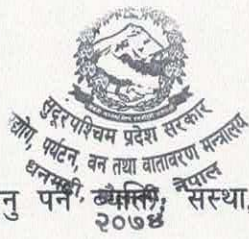 सुदूरपश्चिम प्रदेश सरकार
उद्योग, पर्यटन, वन तथा वातावरण मन्त्रालय
धनगढी, नेपाल
नु पर्ने व्यक्ति, संस्था,
२०७४